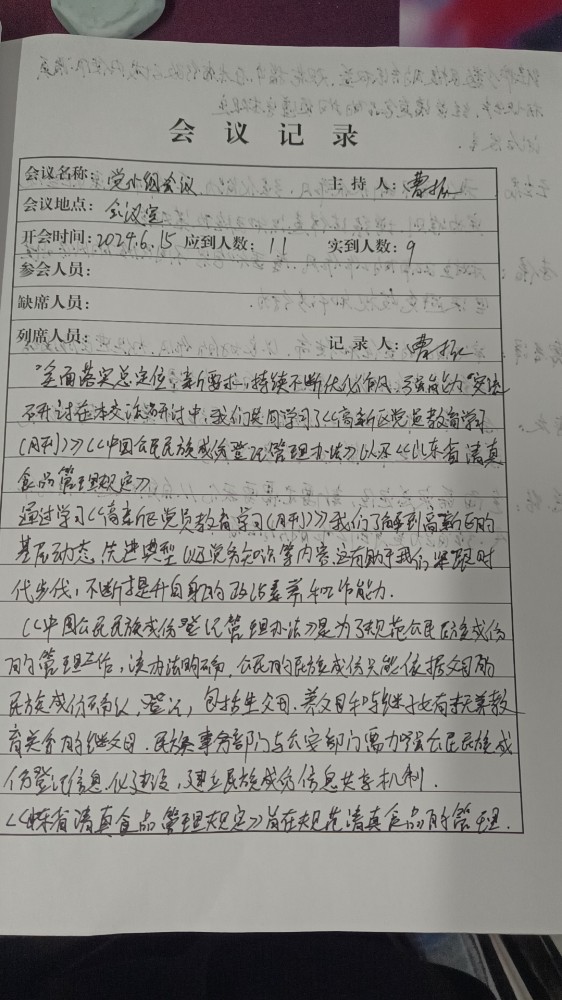 会议记录
会议名称：党小组会议 主持人：曹振
会议地点：会议室
开会时间：2024.6.15 应到人数：11 实到人数：9
参会人员：
缺席人员：
列席人员： 记录人：曹振
"全面落实总定位，新要求，持续不断优化作风、强能力"实践
研讨在本次研讨中，我们共同学习了《高新区党员教育学习
（月刊）》《中国公民民族成份登记管理办法》以及《山东省清真
食品管理规定》
通过学习《高新区党员教育学习（月刊）》我们了解到高新区的
基层动态、先进典型以及党务知识等内容，还有助于我们紧跟时
代步伐，不断提升自身的政治素养和工作能力．
《中国公民民族成份登记管理办法》是为了规范公民民族成份
的管理工作，该办法明确，公民的民族成份只能依据父母的
民族成份确认、登记，包括生父母、养父母和与继子女有抚养教
育关系的继父母．民族事务部门与公安部门需加强公民民族成
份登记信息化建设，建立民族成份信息共享机制．
《山东省清真食品管理规定》旨在规范清真食品的管理．